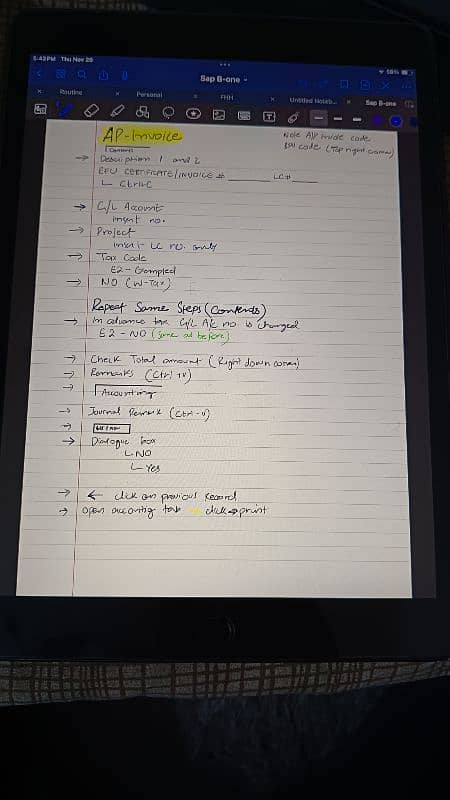 5:43PM Thu Nov 28
58%
Sap B-one
Routine
Personal
FHH
Untitled Noteb...
Sap B-one
AP-Invoice
Note A/P invoice code
code (Top right corner)
Contents
→ Description 1 and 2
EFU CERTIFICATE/INVOICE # ________ LC# ____
Ctrl+C
→ G/L Account
insert no.
→ Project
insert LC no. only
→ Tax Code
E2 - Exempted
→ NO (W-Tax)
Repeat Same Steps (Contents)
→ In advance tax G/L A/c no is changed
E2 - NO (same as before)
→ Check Total amount (Right down corner)
→ Remarks (Ctrl+V)
→ Accounting
→ Journal Remark (Ctrl-V)
→
→ Dialogue box
NO
Yes
→ ← click on previous Record
→ Open accontig tab → click → print